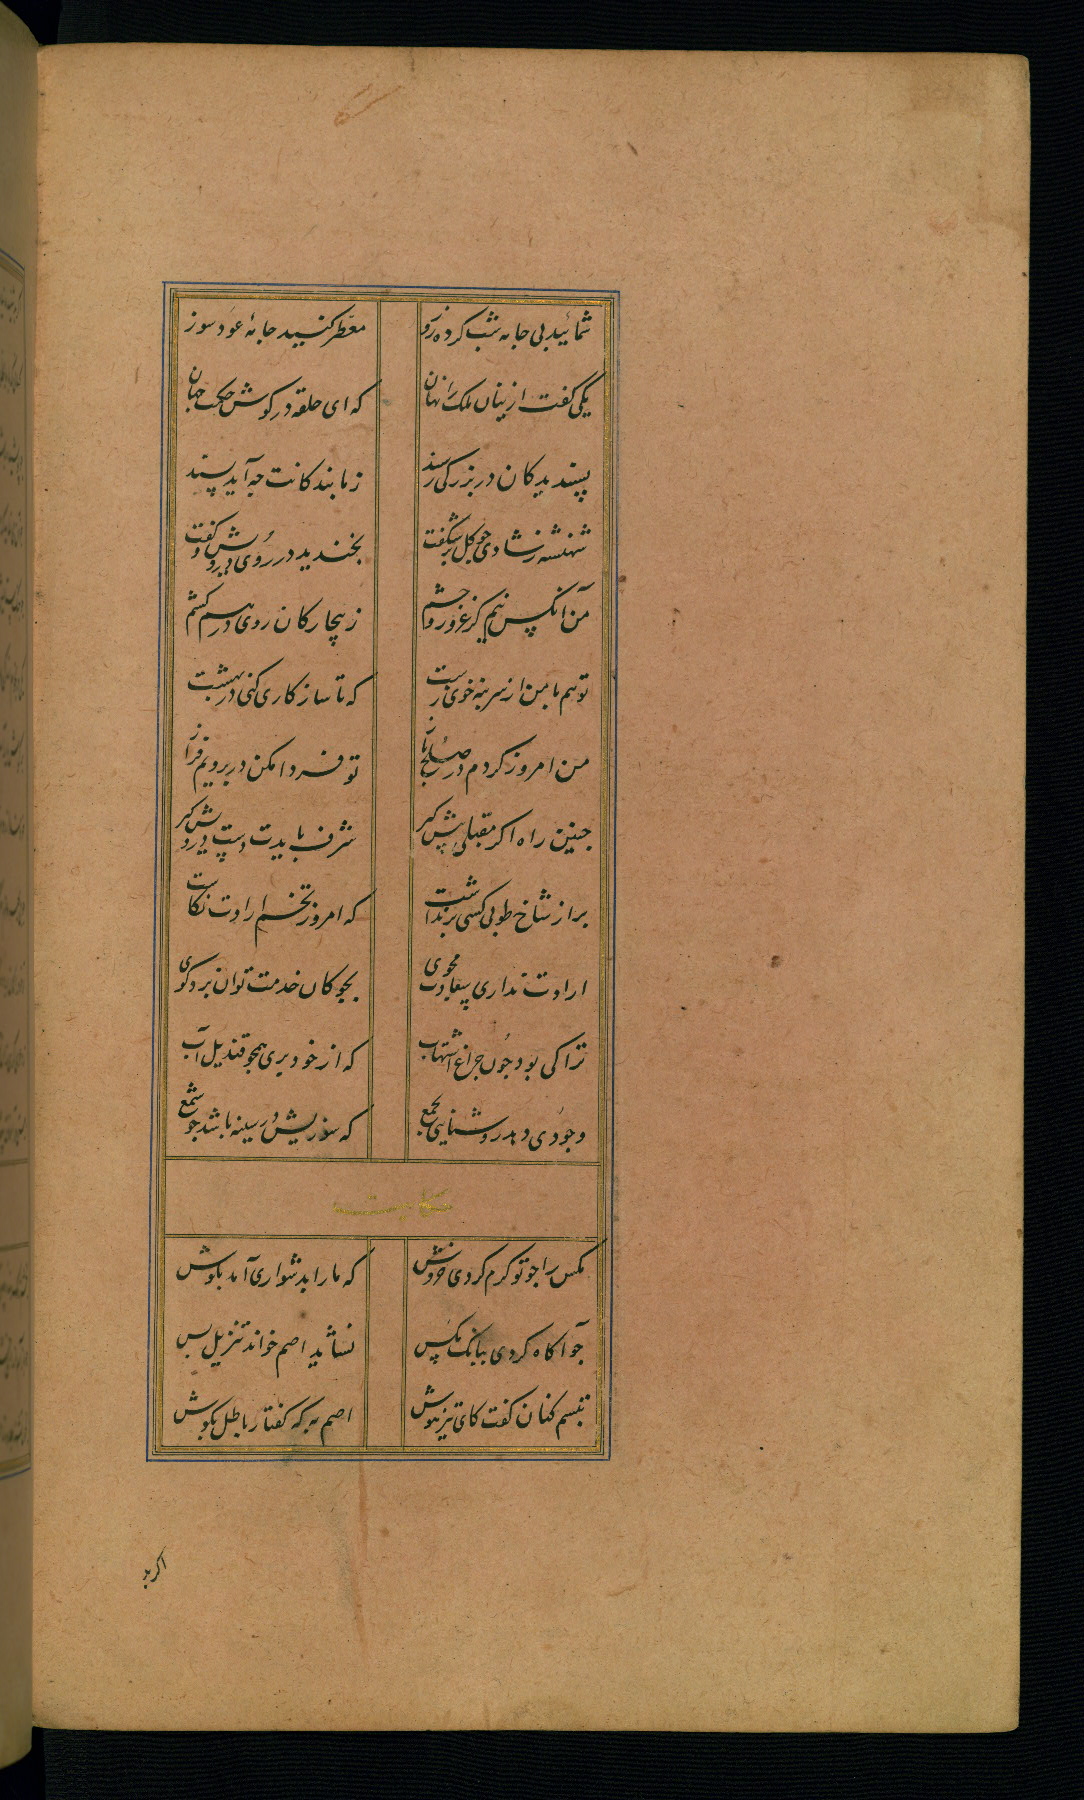 شمائید بی جامه شب کرده روز معطر کنید جامهٔ عود سوز
یکی گفت از اینان ملک را نهان که ای حلقه در کوش حکمت جهان
پسندیدکان در بزرکی رسند ز ما بندکانت چه آید پسند
شهنشه ز شادی چو کل بر شکفت بخندید در روی درویش و کفت
من آنکس نیم کز غرور و حشم ز بیچارکان روی در هم کشم
تو هم با من از سر بنه خوی زشت که تا سازکاری کنی در بهشت
من امروز کردم در صلح باز تو فردا مکن در برویم فراز
چنین راه اکر مقبلی پیش کیر شرف بایدت دست درویش کیر
بر از شاخ طوبی کسی بر نداشت که امروز تخم ارادت نکاشت
ارادت نداری سعادت مجوی بچوکان خدمت توان برد کوی
ترا کی بود چون چراغ التهاب که از خود پری همچو قندیل آب
وجودی دهد روشنایی بجمع که سوزیش در سینه باشد چو شمع
حکایت
مکس را چو تو کرم کردی خروش که ما را بدشواری آمد بکوش
چو آکاه کردی ببانک مکس نشاید اصم خواندنت زین سپس
تبسم کنان کفت کای تیز هوش اصم به که کفتار باطل بکوش
اکر بد